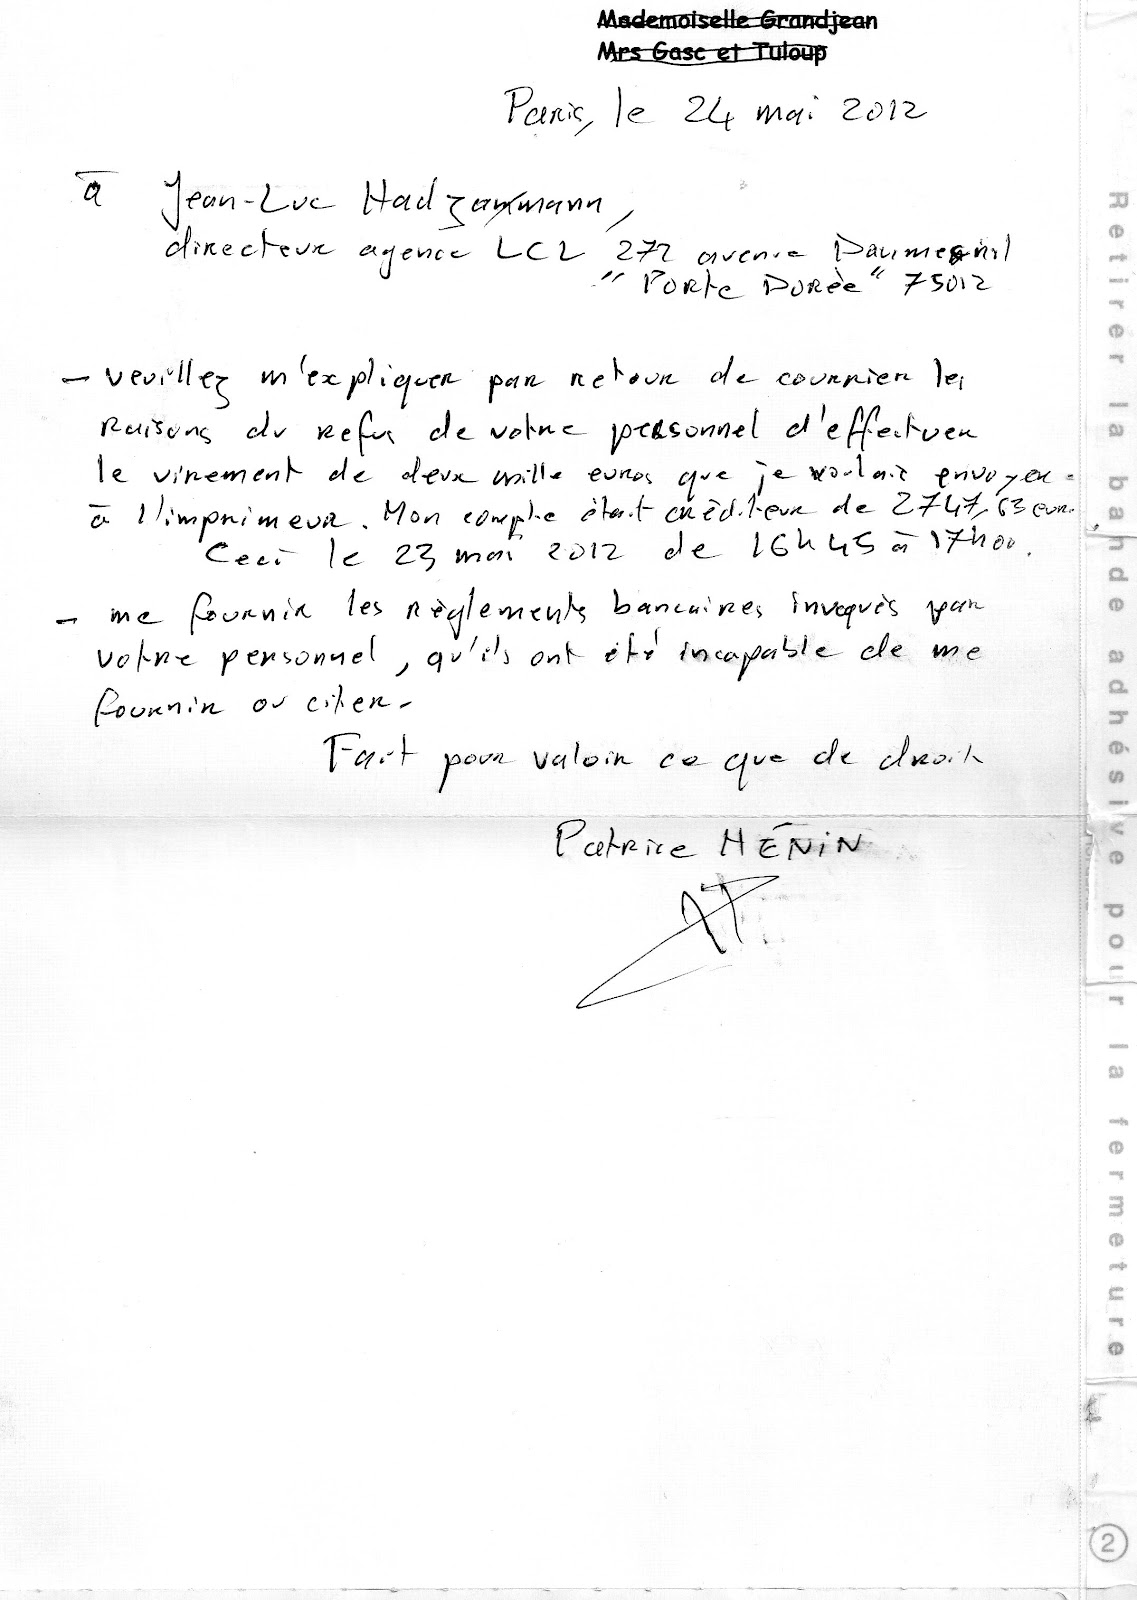 Mademoiselle Grandjean
Mrs Gasc et Tuloup
Paris, le 24 mai 2012
à Jean-Luc
directeur agence LCL 272 avenue Daumesnil
"Porte Dorée" 75012
- veuillez m'expliquer par retour de courrier les
raisons du refus de votre personnel d'effectuer
le virement de deux mille euros que je voulais envoyer
à l'imprimeur. Mon compte était créditeur de 2747,63 eur.
Ceci le 23 mai 2012 de 16h45 à 17h00.
- me fournir les règlements bancaires invoqués par
votre personnel, qu'ils ont été incapable de me
fournir ou citer.
Fait pour valoir ce que de droit
Patrice HÉNIN
Retirer la bande adhésive pour la fermeture
2